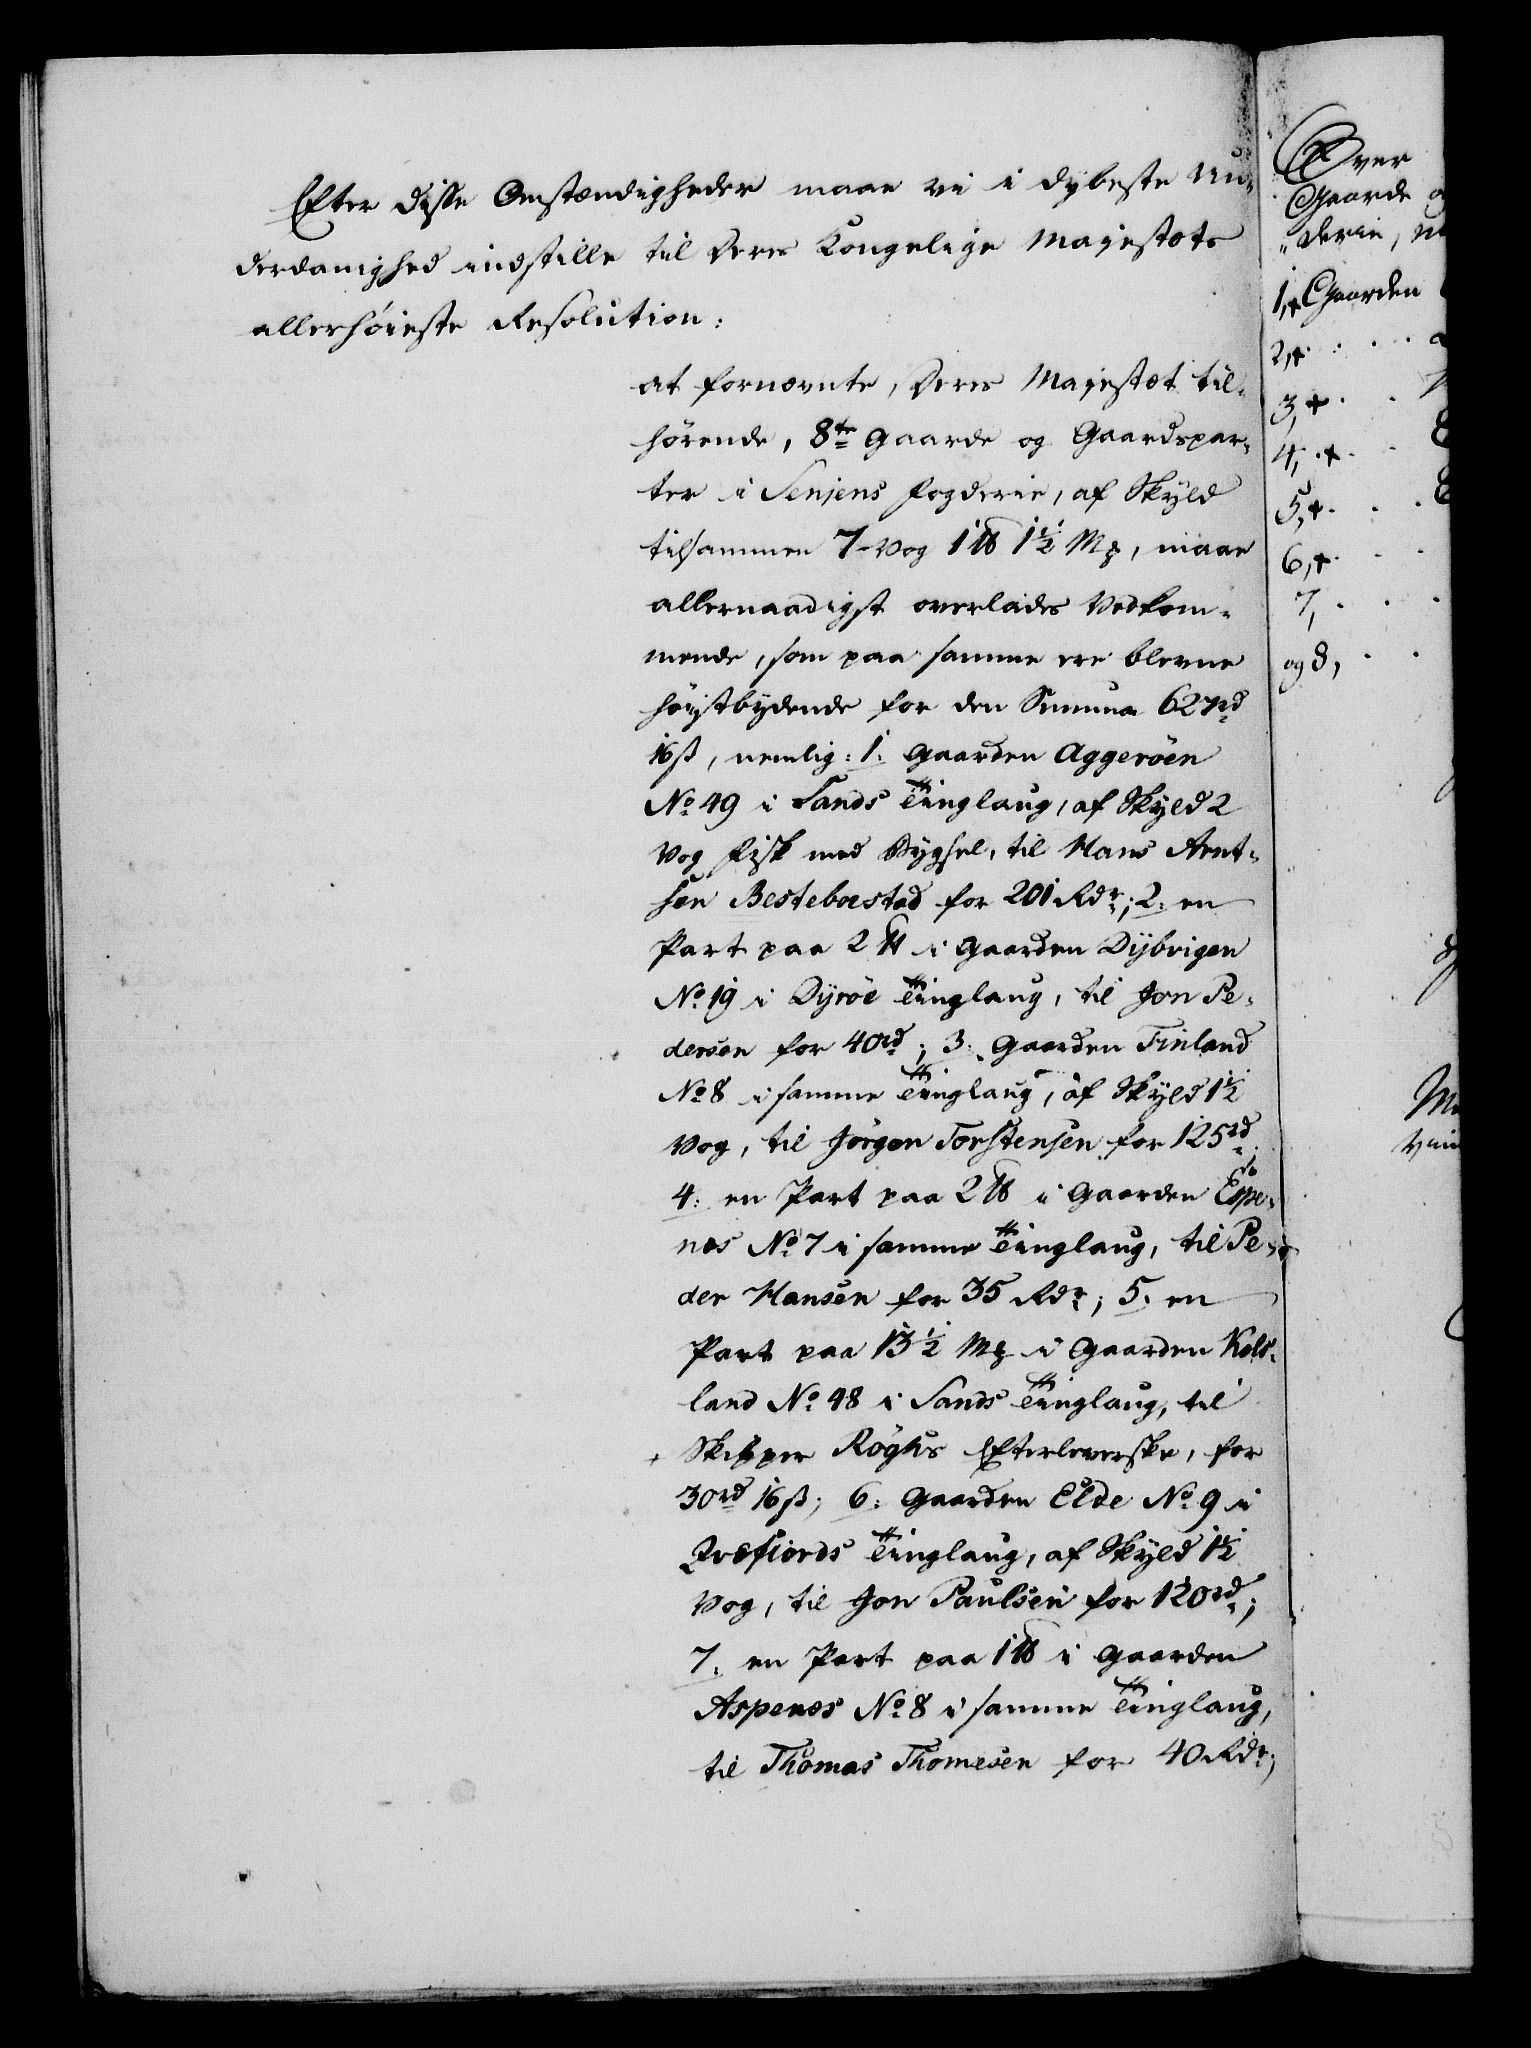 Efter disse Omstændigheder maae vi i dybeste Un-
derdanighed indstille til Deres Kongelige Majestæts
allerhøieste Resolution:
at fornævnte, Deres Majestæt til-
hørende, 8te Gaarde og Gaardspar-
ter i Senjens Fogderie, af Skyld
tilsammen 7 Vog 1 ℔ 1½ Mk, maae
allernaadigst overlades Vedkom-
mende, som paa samme ere blevne
høistbydende for den Summa 627rd
16ß, nemlig: 1. Gaarden Aggerøen
No 49 i Sands Tinglaug, af Skyld 2
Vog Fisk med Bygsel, til Hans Arnt-
sen Bestebostad for 201 Rdr; 2. en
Part paa 2 ℔ i Gaarden Dybvigen
No 19 i Dyrøe Tinglaug, til Jon Pe-
dersen for 40rd; 3. Gaarden Finland
No 8 i samme Tinglaug, af Skyld 1½
Vog, til Jörgen Torstensen for 125rd;
4. en Part paa 2 ℔ i Gaarden Espe-
næs No 7 i samme Tinglaug, til Pe-
der Hansen for 35 Rdr; 5. en
Part paa 13½ Mk i Gaarden Kols-
land No 48 i Sands Tinglaug, til
Skipper Røghs Efterleverske, for
30rd 16ß; 6. Gaarden Elde No 9 i
Qvæfiords Tinglaug, af Skyld 1½
Vog, til Jon Paulsen for 120rd;
7. en Part paa 1 ℔ i Gaarden
Aspenæs No 8 i samme Tinglaug,
til Thomas Thomesen for 40 Rdr;
Over
Gaarde
derie,
1, + Gaarden
2, +
3, +
4, +
5, +
6, +
7,
og 8,